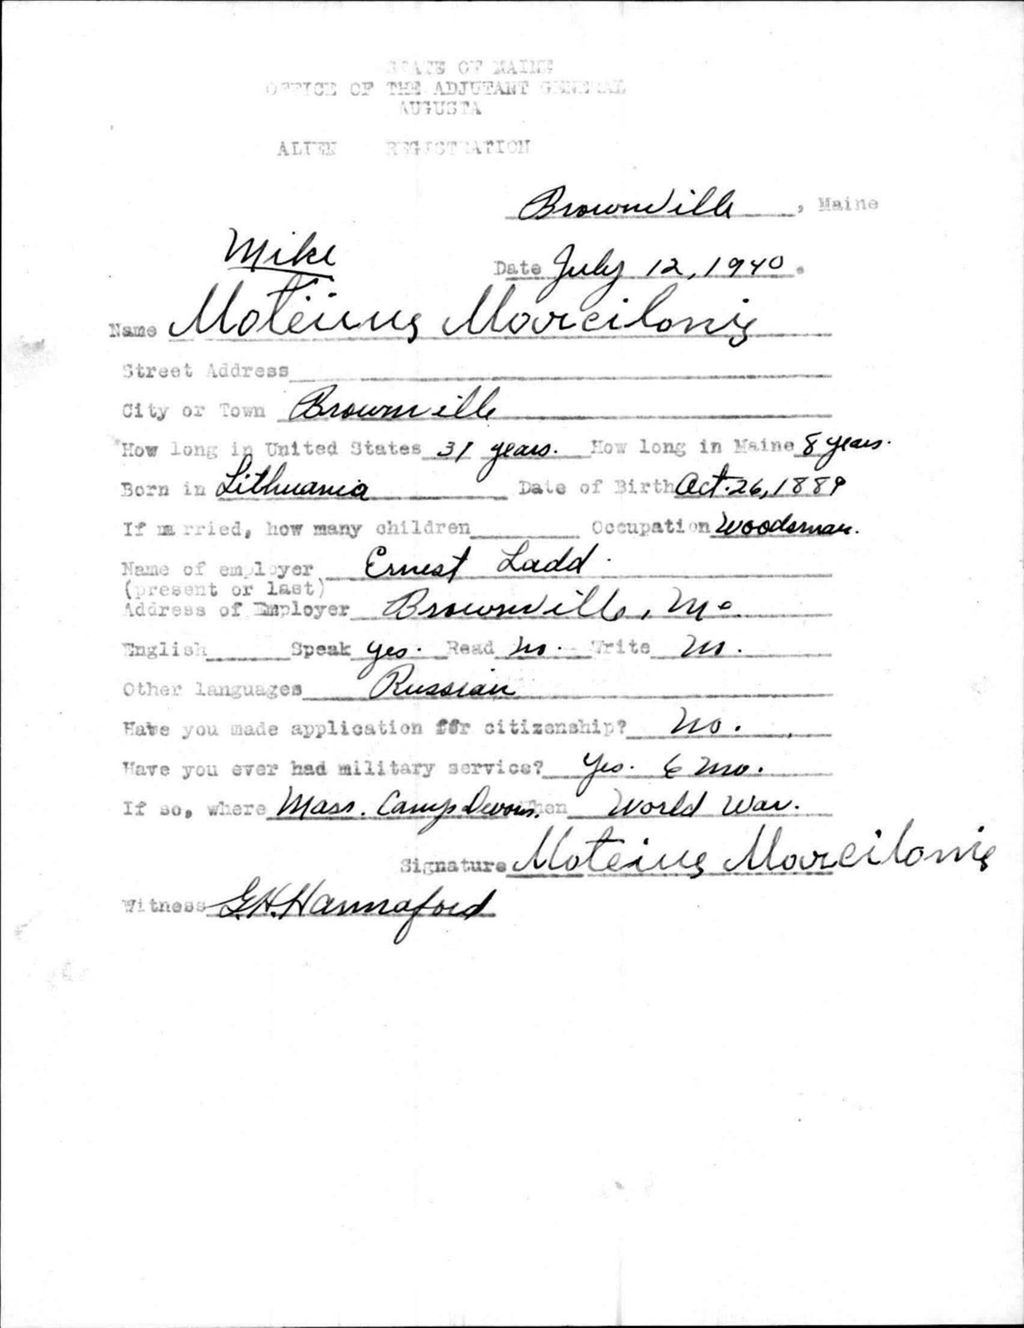 STATE OF MAINE
OFFICE OF THE ADJUTANT GENERAL
AUGUSTA
ALIEN REGISTRATION
Brownville, Maine
Mike
Date July 12, 1940.
Name Moteiuus Marcilonis
Street Address
City or Town Brownville
How long in United States 31 years. How long in Maine 8 years.
Born in Lithuania Date of Birth Oct. 26, 1889
If married, how many children Occupation Woodsman.
Name of employer Ernest Ladd.
(present or last)
Address of Employer Brownville, Me
English Speak yes. Read no. Write no.
Other languages Russian
Have you made application for citizenship? No.
Have you ever had military service? Yes. 6 mo.
If so, where Mass. Camp Devens. When World War.
Signature Moteius Marcilonis
Witness G.H. Hannaford